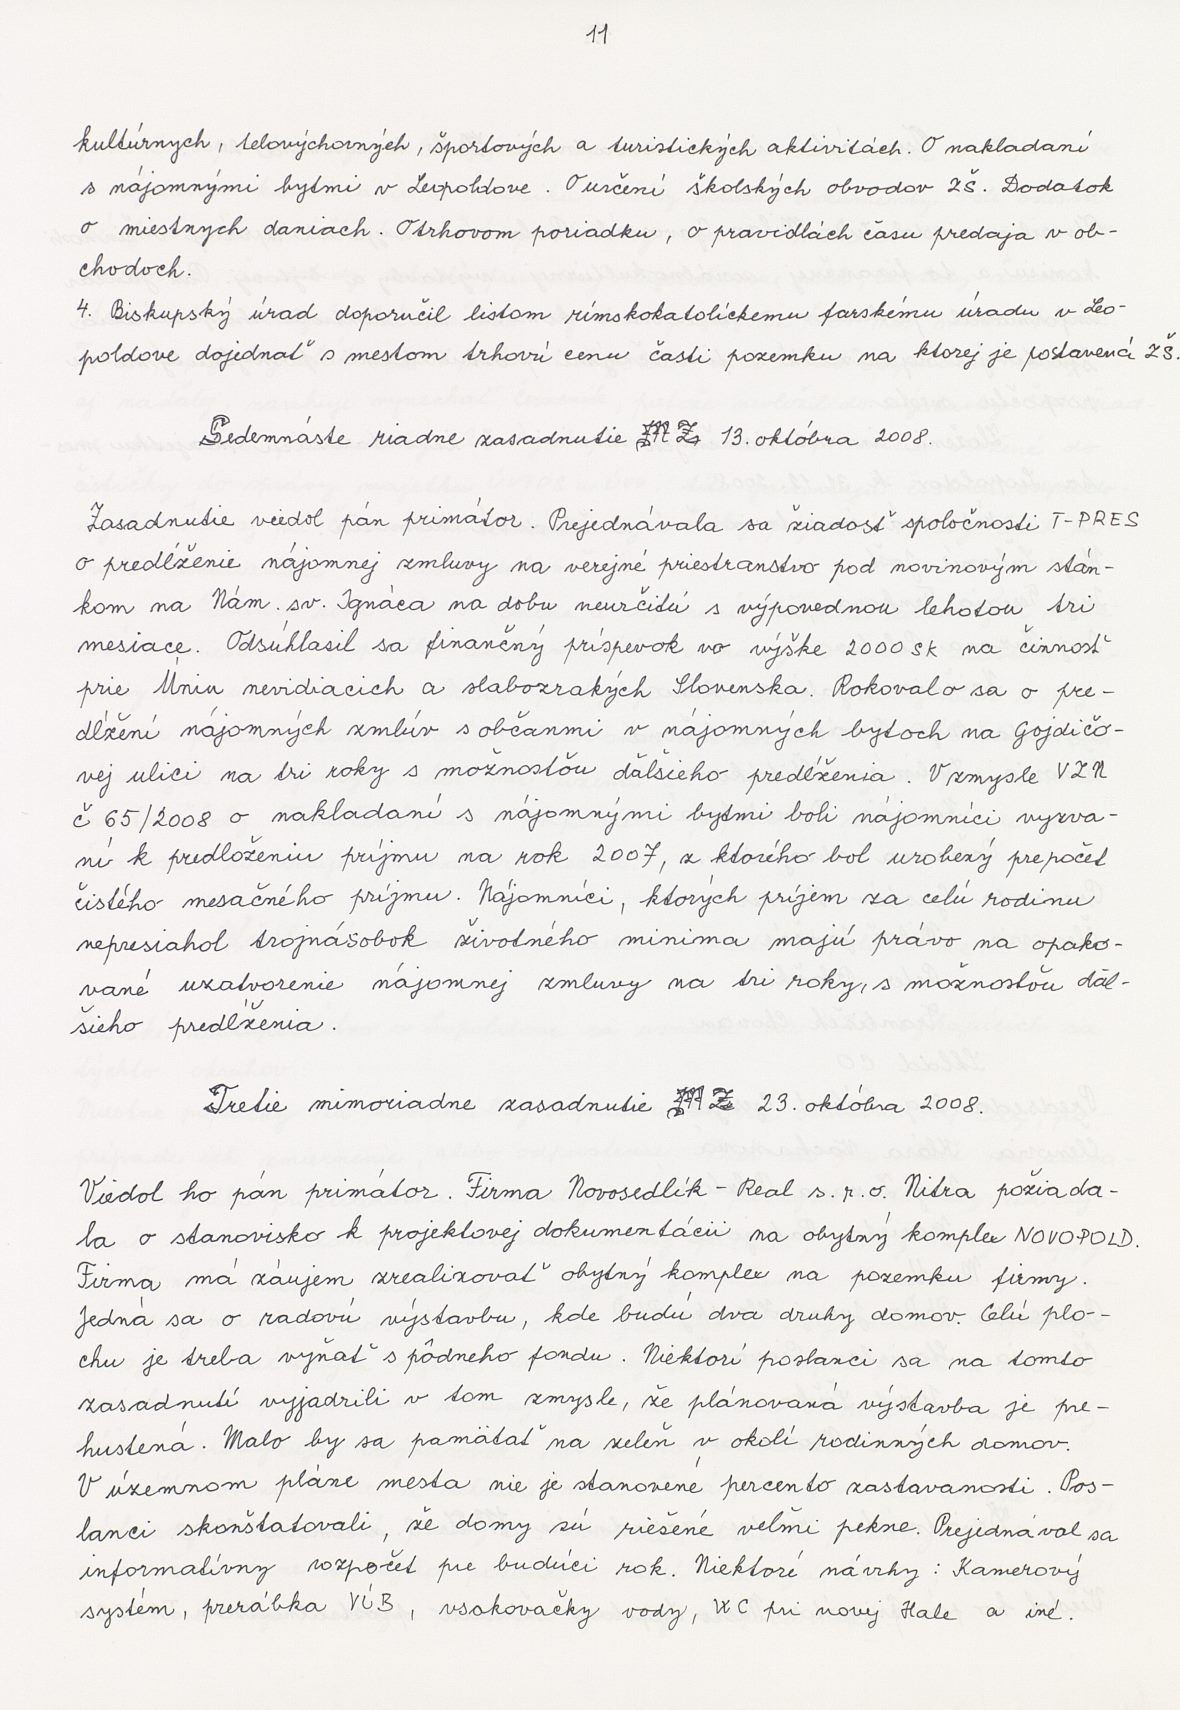 11
kultúrnych, telovýchovných, športových a turistických aktivitách. O nakladaní
s nájomnými bytmi v Leopoldove. O určení školských obvodov ZŠ. Dodatok
o miestnych daniach. O trhovom poriadku, o pravidlách času predaja v ob-
chodoch.
4. Biskupský úrad doporučil listom rímskokatolíckemu farskému úradu v Leo-
poldove dojednať s mestom trhovú cenu časti pozemku na ktorej je postavená ZŠ.
Sedemnáste riadne zasadnutie MZ 13. októbra 2008.
Zasadnutie viedol pán primátor. Prejednávala sa žiadosť spoločnosti T-PRES
o predĺženie nájomnej zmluvy na verejné priestranstvo pod novinovým stán-
kom na Nám. sv. Ignáca na dobu neurčitú s výpovednou lehotou tri
mesiace. Odsúhlasil sa finančný príspevok vo výške 2000 SK na činnosť
prie Úniu nevidiacich a slabozrakých Slovenska. Rokovalo sa o pre-
dĺžení nájomných zmlúv s občanmi v nájomných bytoch na Gojdičo-
vej ulici na tri roky s možnosťou ďalšieho predĺženia. V zmysle VZN
č 65/2008 o nakladaní s nájomnými bytmi boli nájomníci vyzva-
ní k predloženiu príjmu na rok 2007, z ktorého bol urobený prepočet
čistého mesačného príjmu. Nájomníci, ktorých príjem za celú rodinu
nepresiahol trojnásobok životného minima majú právo na opako-
vané uzatvorenie nájomnej zmluvy na tri roky, s možnosťou ďal-
šieho predĺženia.
Tretie mimoriadne zasadnutie MZ 23. októbra 2008.
Viedol ho pán primátor. Firma Novosedlík - Real s.r.o. Nitra požiada-
la o stanovisko k projektovej dokumentácii na obytný komplex NOVOPOLD.
Firma má záujem zrealizovať obytný komplex na pozemku firmy.
Jedná sa o radovú výstavbu, kde budú dva druhy domov. Celú plo-
chu je treba vyňať s pôdneho fondu. Niektorí poslanci sa na tomto
zasadnutí vyjadrili v tom zmysle, že plánovaná výstavba je pre-
hustená. Malo by sa pamätať na zeleň v okolí rodinných domov.
V územnom pláne mesta nie je stanovené percento zastavanosti. Pos-
lanci skonštatovali, že domy sú riešené veľmi pekne. Prejednával sa
informatívny rozpočet pre budúci rok. Niektoré návrhy: Kamerový
systém, prerábka VÚB, vsakovačky vody, WC pri novej Hale a iné.